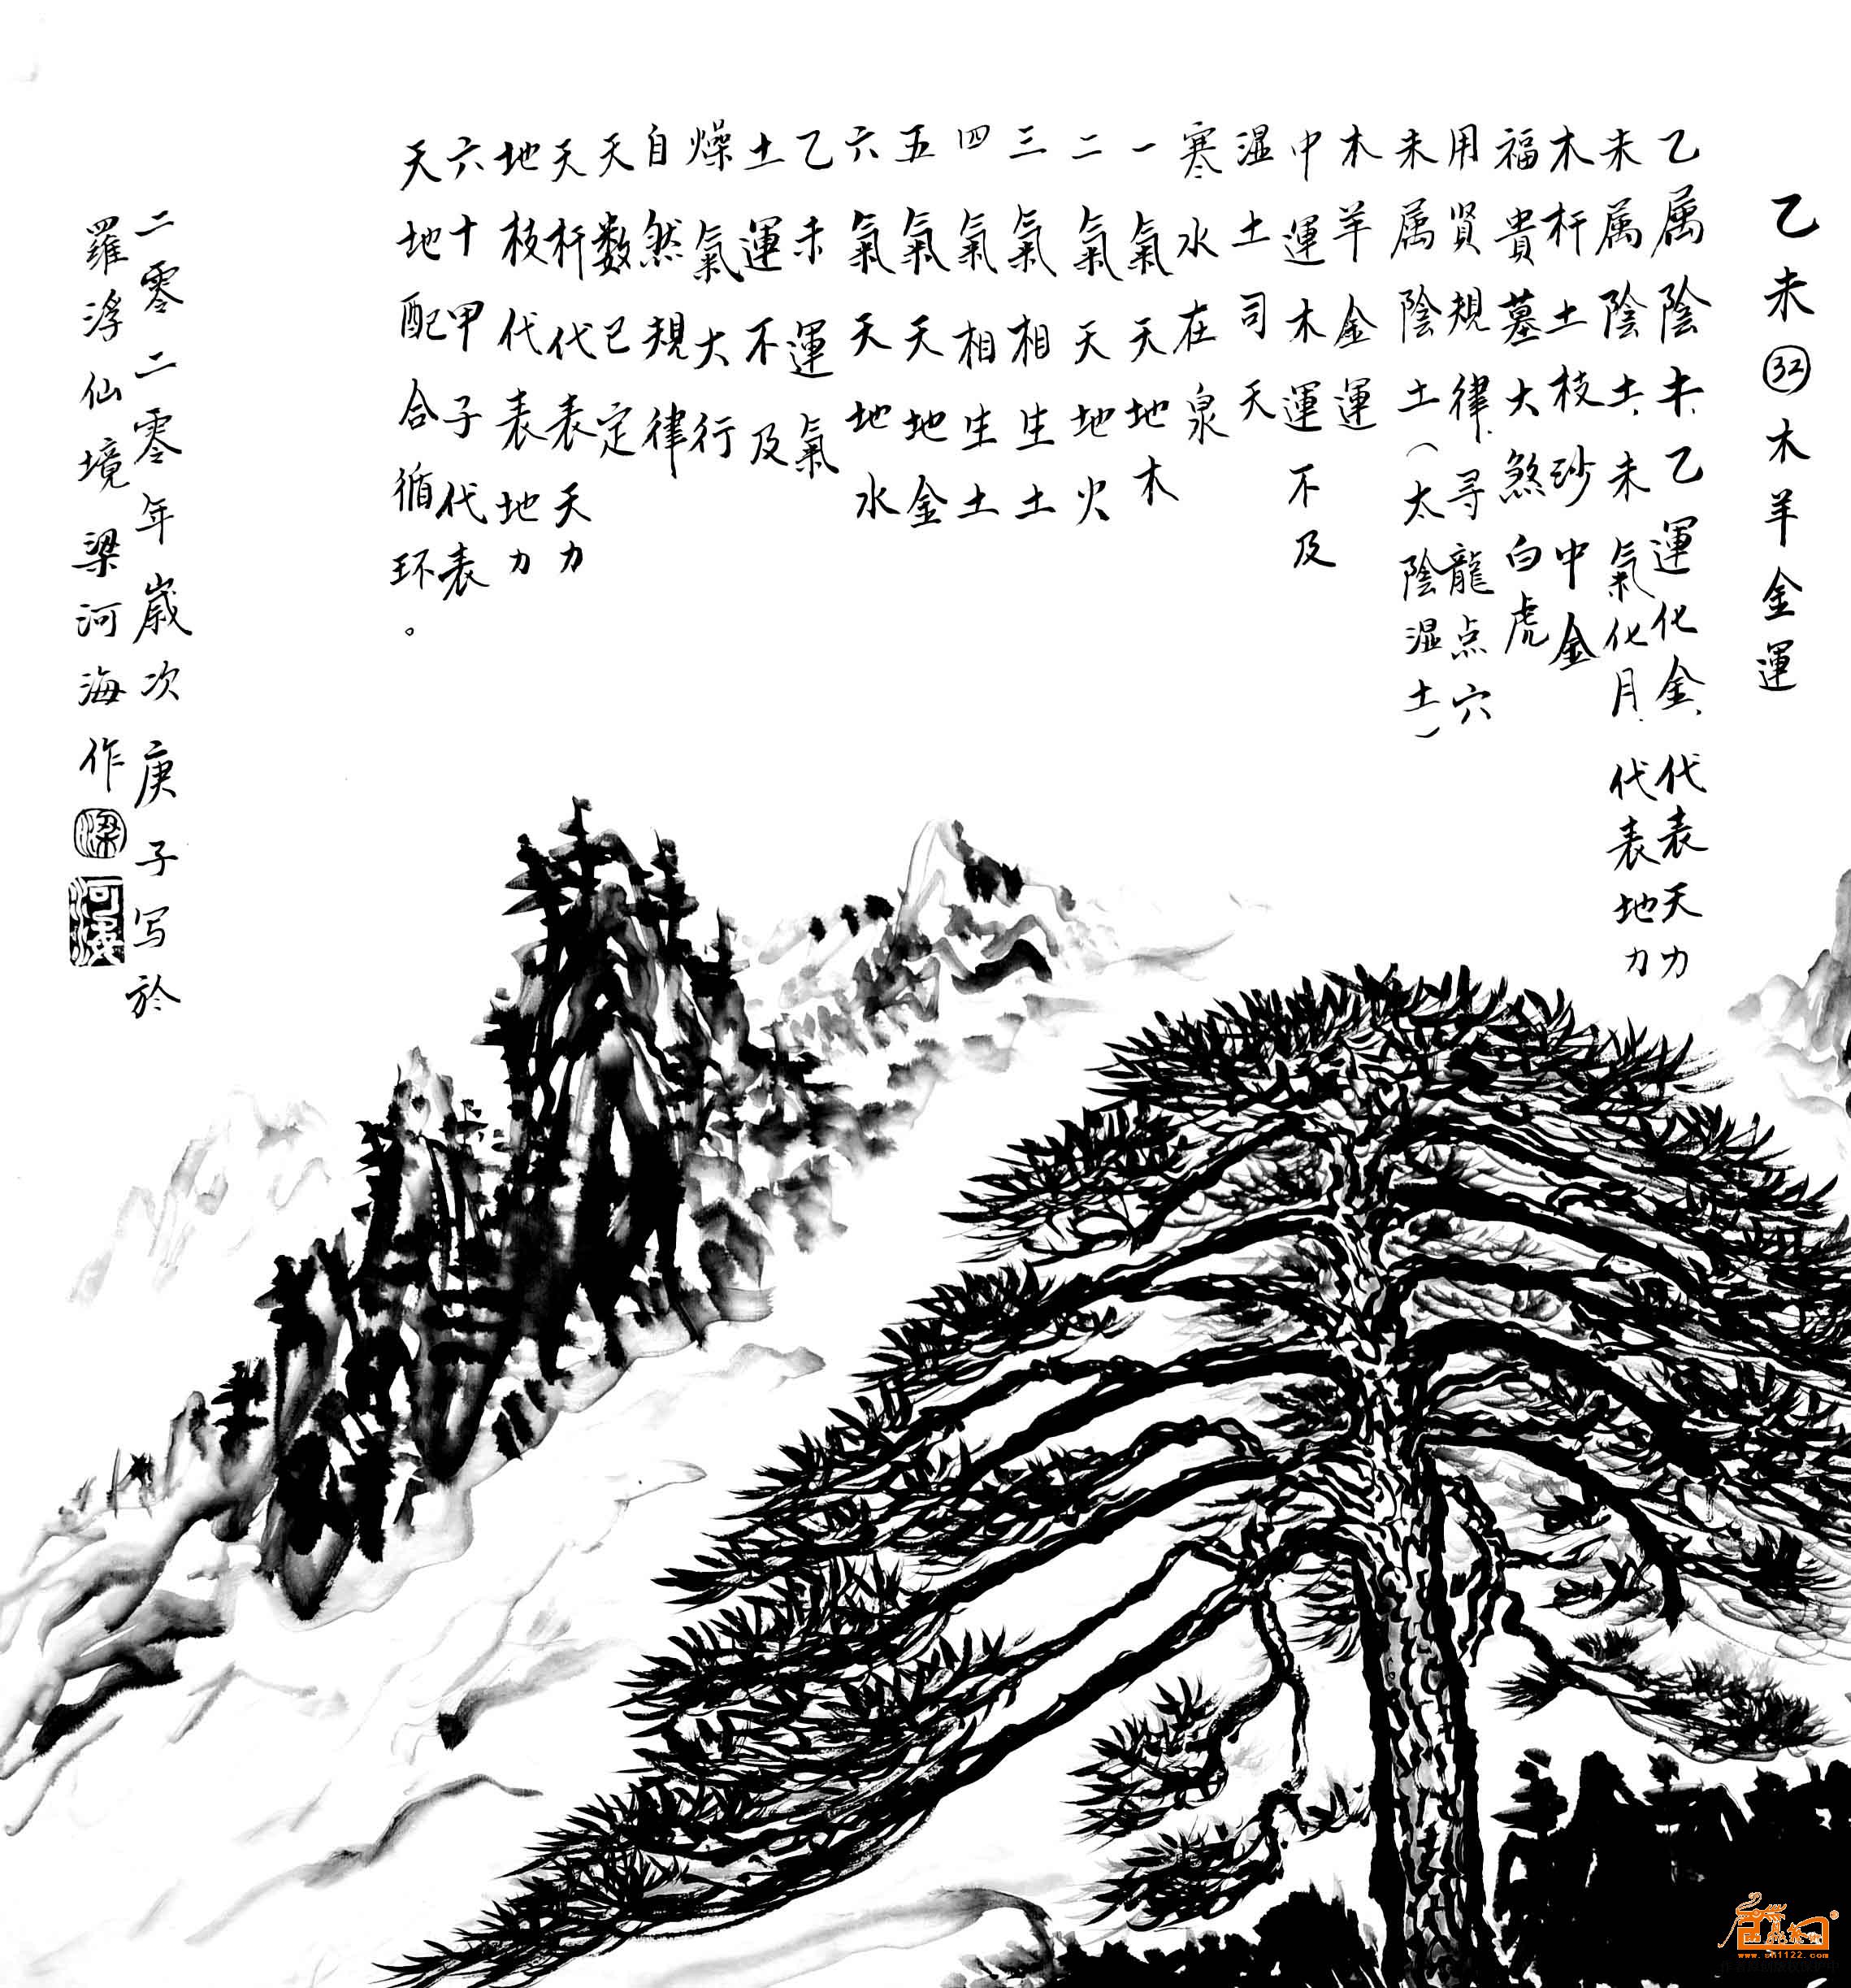 乙未㉜木羊金運
乙属陰木.乙運化金.代表天力
未属陰土.未氣化月.代表地力
木杆土枝砂中金
福貴墓大煞白虎
用賢規律.寻龍点穴
未属陰土(太陰湿土)
木羊金運
中運木運不及
湿土司天
寒水在泉
一氣天地木
二氣天地火
三氣相生土
四氣相生土
五氣天地金
六氣天地水
乙未運氣
土運不及
燥氣大行
自然規律
天数已定
天杆代表天力
地枝代表地力
六十甲子代表
天地配合循环。
二零二零年歲次庚子写於
羅浮仙境梁河海作
梁
河海
www.sh1122.com